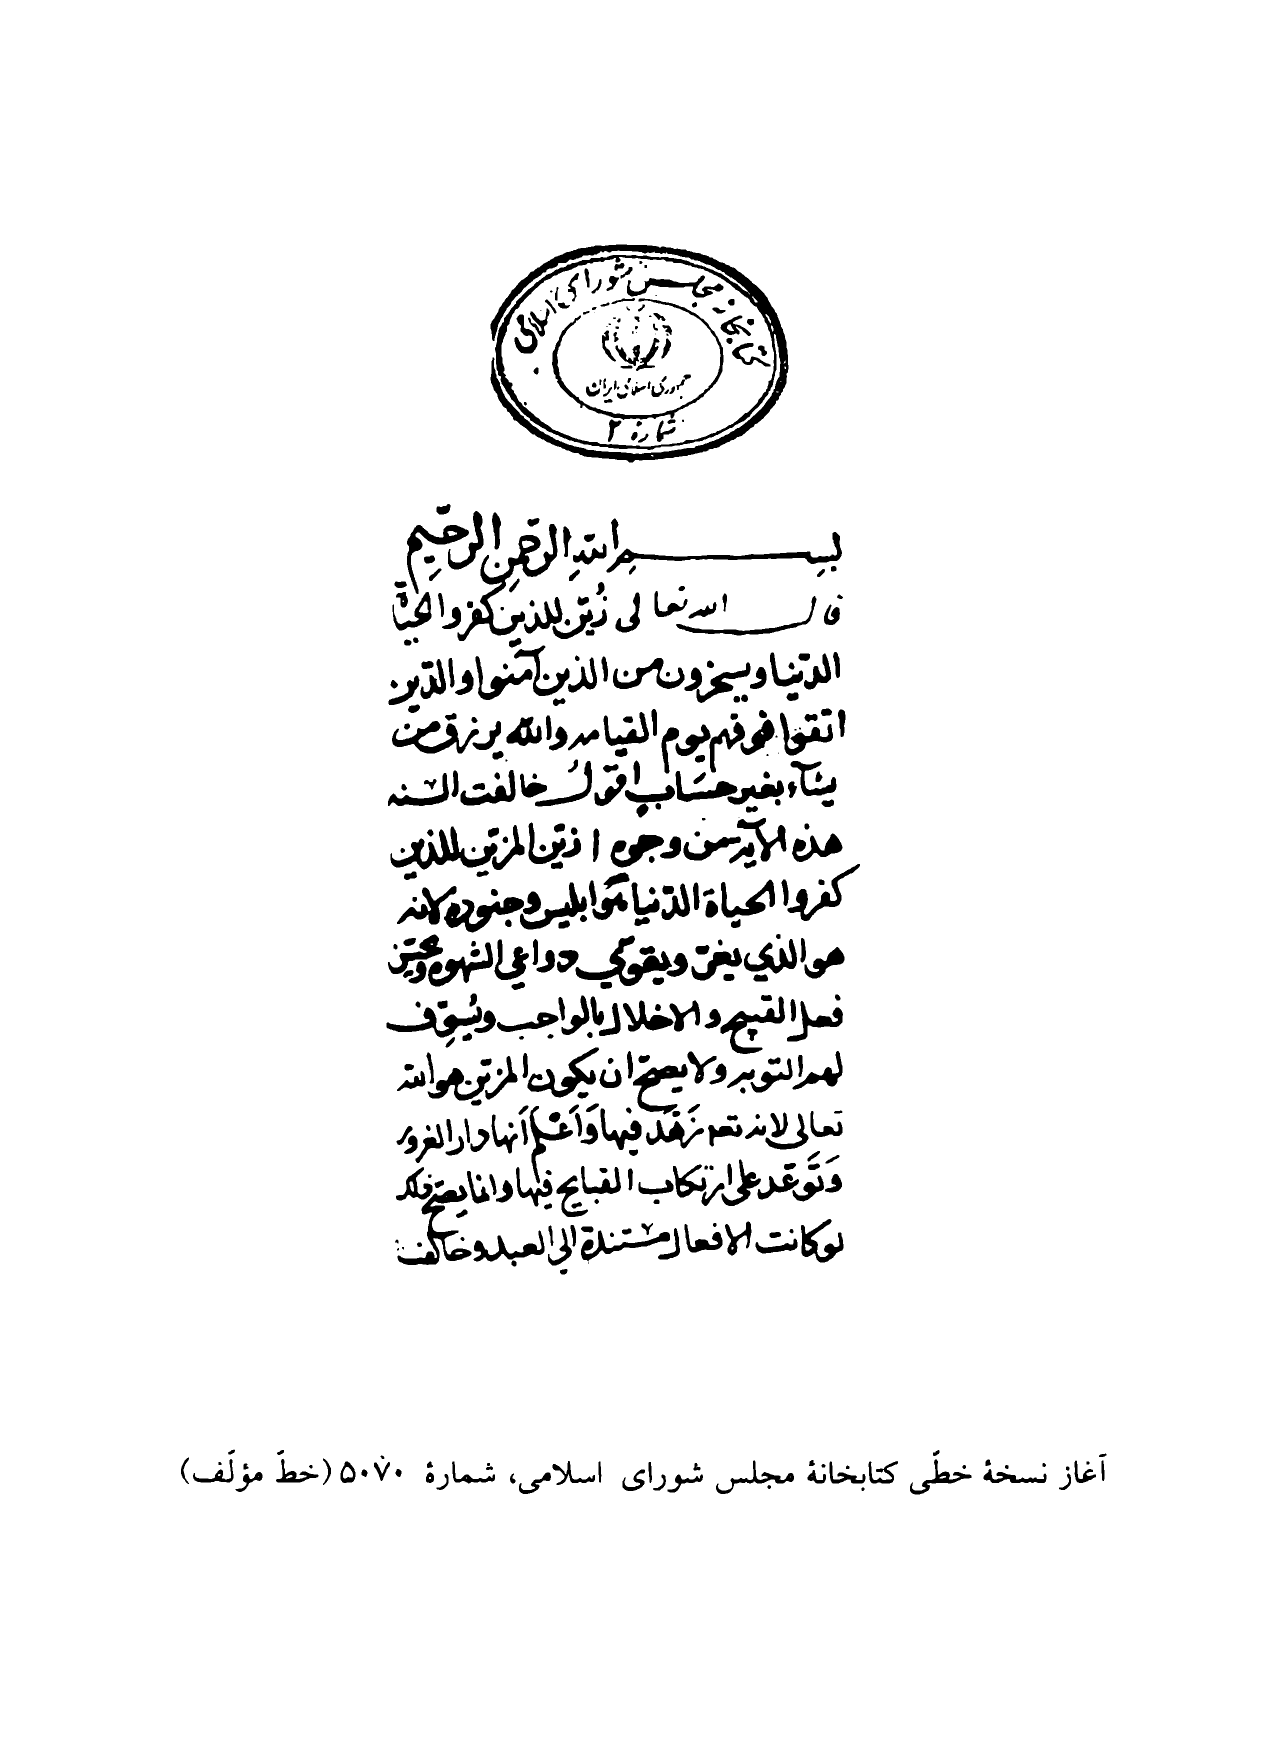 كتابخانه مجلس شورای اسلامی
جمهوری اسلامی ایران
شماره ۲
بسم الله الرحمن الرحيم
قال الله تعالى زُيّن للذين كفروا الحياة
الدّنيا ويسخرون من الذين آمنوا والذين
اتقوا فوقهم يوم القيامه والله يرزق من
يشآء بغير حسابٍ اقولُ خالفت السنه
هذه الآيه من وجوه ا زيّن المزيّن للذين
كفروا الحياة الدّنيا هو ابليس وجنوده لانه
هو الذي يغرّ ويقوي دواعي الشهوه ويحسّن
فعل القبيح والاخلال بالواجب ويُسوِّف
لهم التوبه ولا يصحّ ان يكون المزيّن هو الله
تعالى لانه تعم زَهَّدَ فيها وَأَعْلم أَنها دار الغرور
وَتَوَعّد على ارتكاب القبايح فيها وانما يصحّ ذلك
لو كانت الافعال مستندة الى العبد وخالفت
آغاز نسخۀ خطّی کتابخانۀ مجلس شورای اسلامی، شمارۀ ۵۰۷۰ (خطّ مؤلّف)